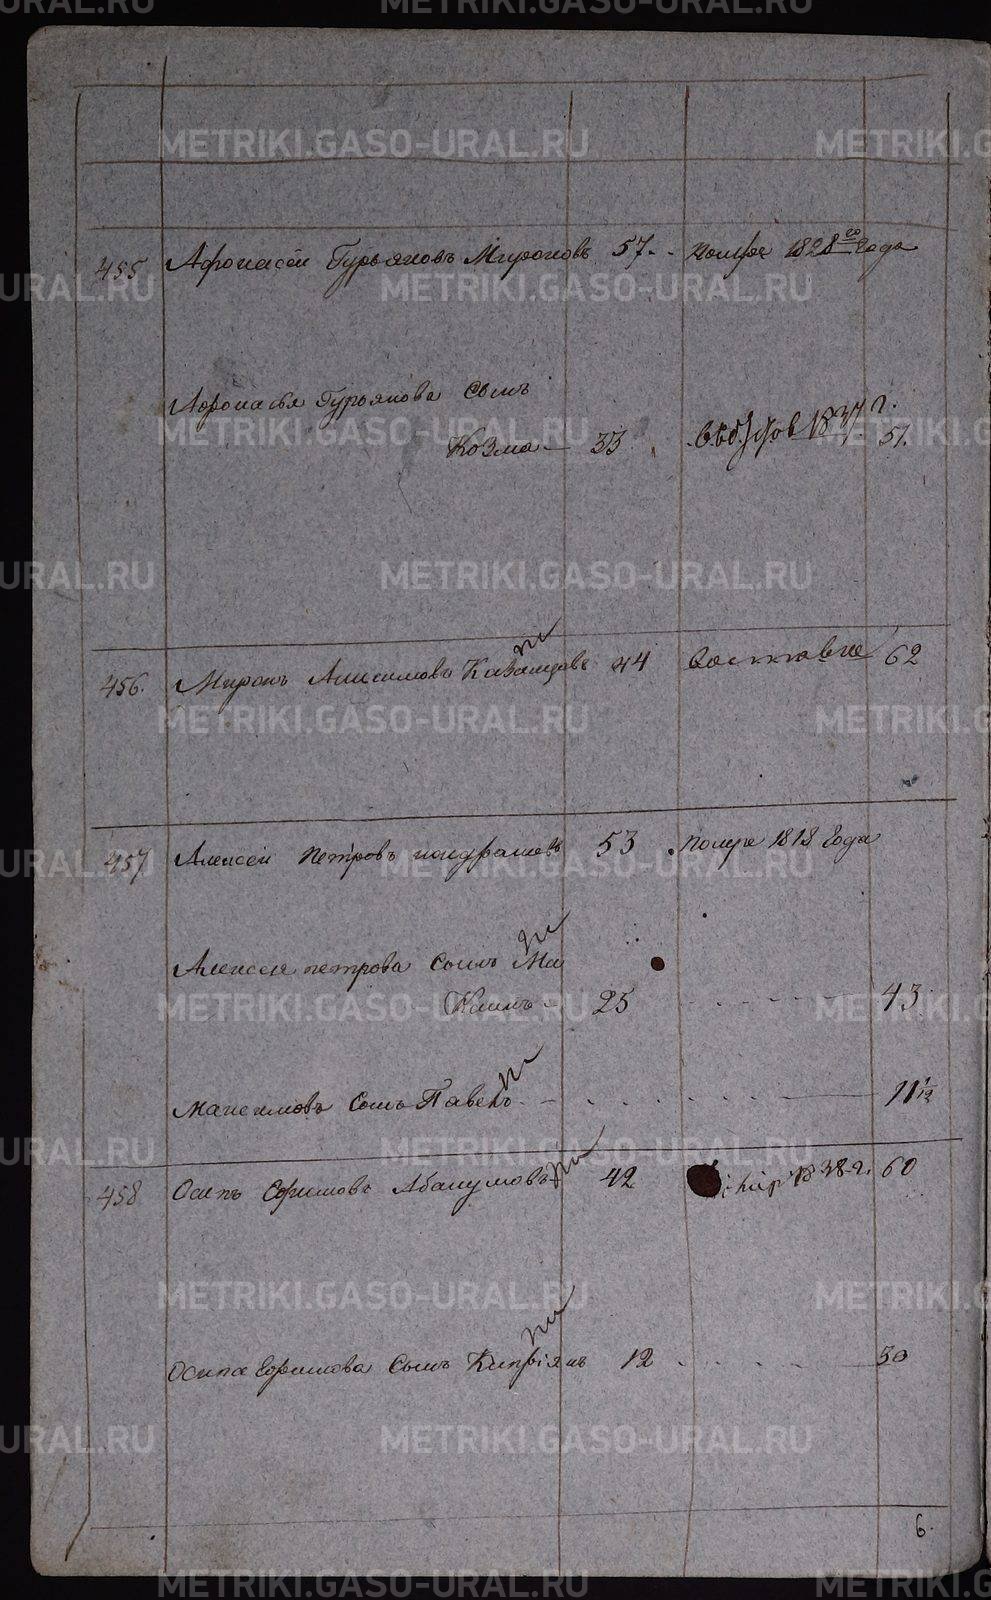 METRIKI.GASO-URAL.RU
455 Афонасей Гурьяновъ Мироновъ 57. Помре 1828го Года
Афонасья Гурьянова Сынъ
Козма 33 1837 г. 51.
456. Миронъ Анисимовъ 44 62
457 Алексей Петровъ Кондрашевъ 53 Помре 1818 Года
Алексея петрова Сынъ Ма
Ксимъ 25 43
Максимовъ Сынъ Павелъ 11 1/12
458 Осипъ Ефимовъ Абакумовъ 42 1838 г. 60
Осипа Ефимова Сынъ Кипріянъ 12 30
6.